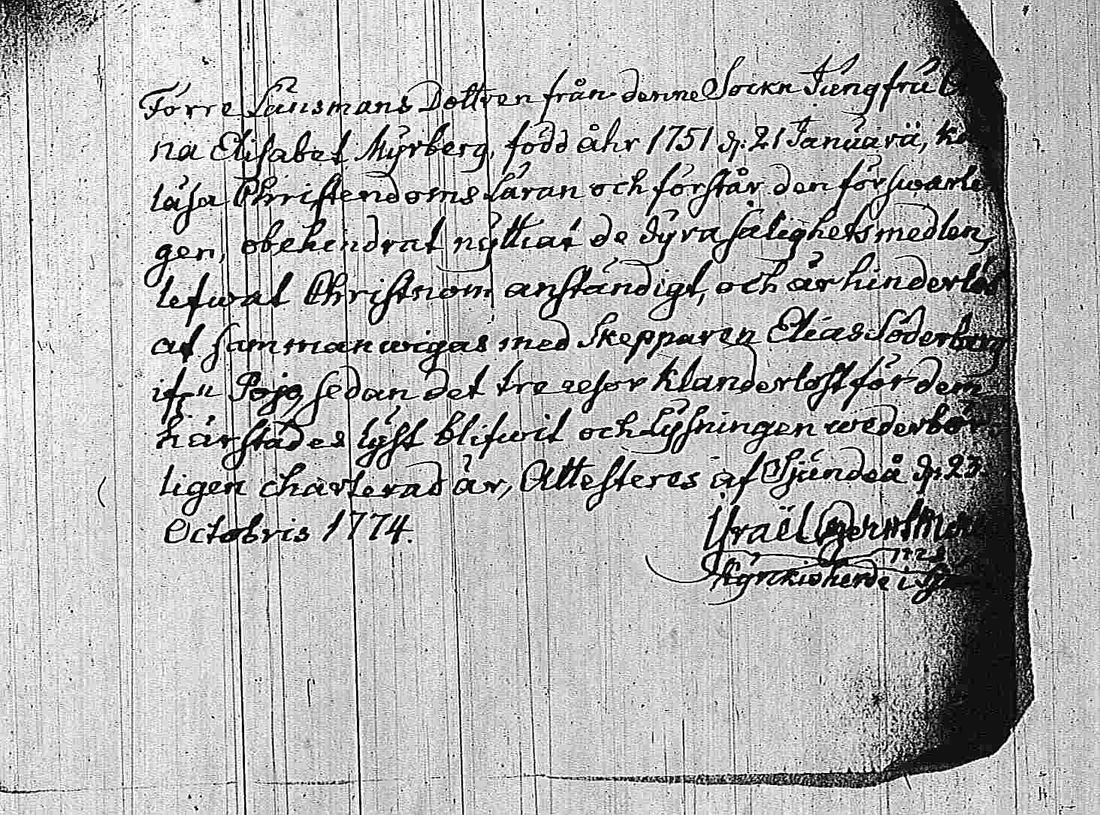 Förre Länsmans Dottren från denne Sockn Jungfru
na Elisabet Myrberg, född åhr 1751 d. 21 Januarii,
läsa Christendoms Läran och förstår den förswarle
gen, obehindrat nyttiat de dyra salighetsmedlen,
lefwat Christnom anständigt, och är hinderlös
at sammanwigas med Skepparen Elias Söderberg
ifrn Pojo, sedan det tre resor klanderlöst för dem
härstädes lyst blifwit och Lysningen wederbör
ligen charterad är, Attesteres af Sjundeå d. 23.
Octobris 1774.
Israël
Kyrkioherde i